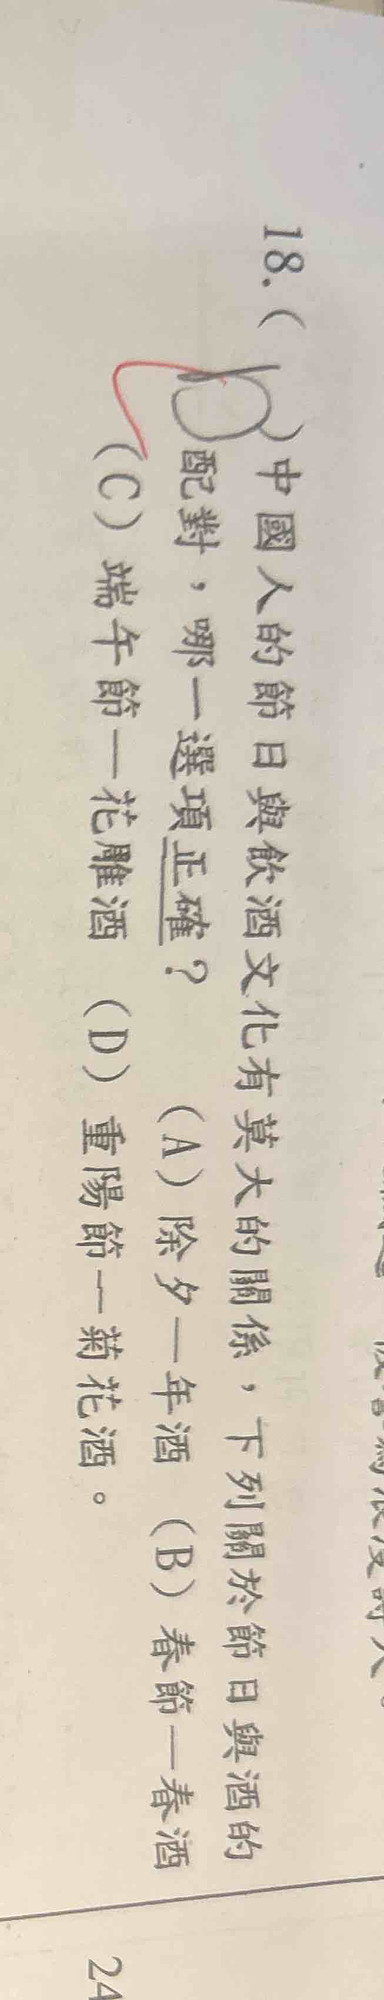 18.( D )中國人的節日與飲酒文化有莫大的關係，下列關於節日與酒的
配對，哪一選項正確？ （A）除夕—年酒 （B）春節—春酒
（C）端午節—花雕酒 （D）重陽節—菊花酒。
24